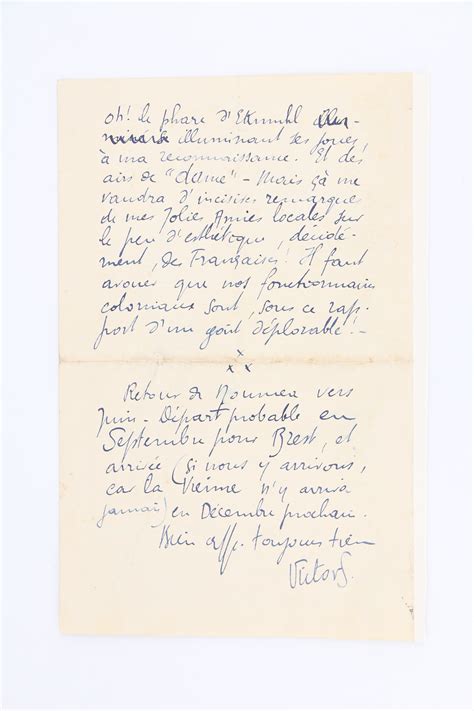 oh! le phare d'Ekmuhl
illuminant ses joues
à ma reconnaissance. Et des
airs de "dame" - Mais çà me
vaudra d'incisives remarques
de mes Jolies Amies locales sur
le peu d'esthétique, décidé-
ment, des Françaises! Il faut
avouer que nos fonctionnaires
coloniaux sont, sous ce rap-
port d'un goût déplorable! -
x x x
Retour de Nouméa vers
Juin - Départ probable en
Septembre pour Brest, et
arrivée (si nous y arrivons,
car la Vienne n'y arriva
jamais) en Décembre prochain.
Bien aff. toujours tien
VictorS.